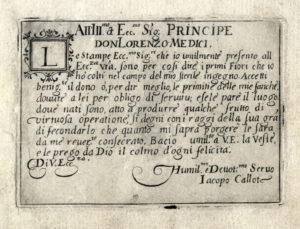 All Ill.mo & Ecc.mo Sig. PRINCIPE
DON LORENZO MEDICI.
Le Stampe Ecc.mo Sig.re ch'io umilmente presento all
Ecc.za Vra, sono per così dire i primi Fiori che io
hò colti nel campo del mio sterile ingegno Accetti
benig.te il dono, ò, per dir meglio, le primitie delle mie fatiche
douute a lei per obligo di seruitu; e se le pare il luogo
doue nati sono, atto à produrre qualche frutto di
virtuosa operatione, si degni con i raggi della sua gra
di fecondarlo che quanto mi saprà porgere le sarà
da me reuer.te consecrato. Bacio umil.te à V.E. la Veste,
e le prego da Dio il colmo d'ogni felicita.
Di V. Ecc.za
Humil.mo e Deuot.mo Seruo
Iacopo Callot